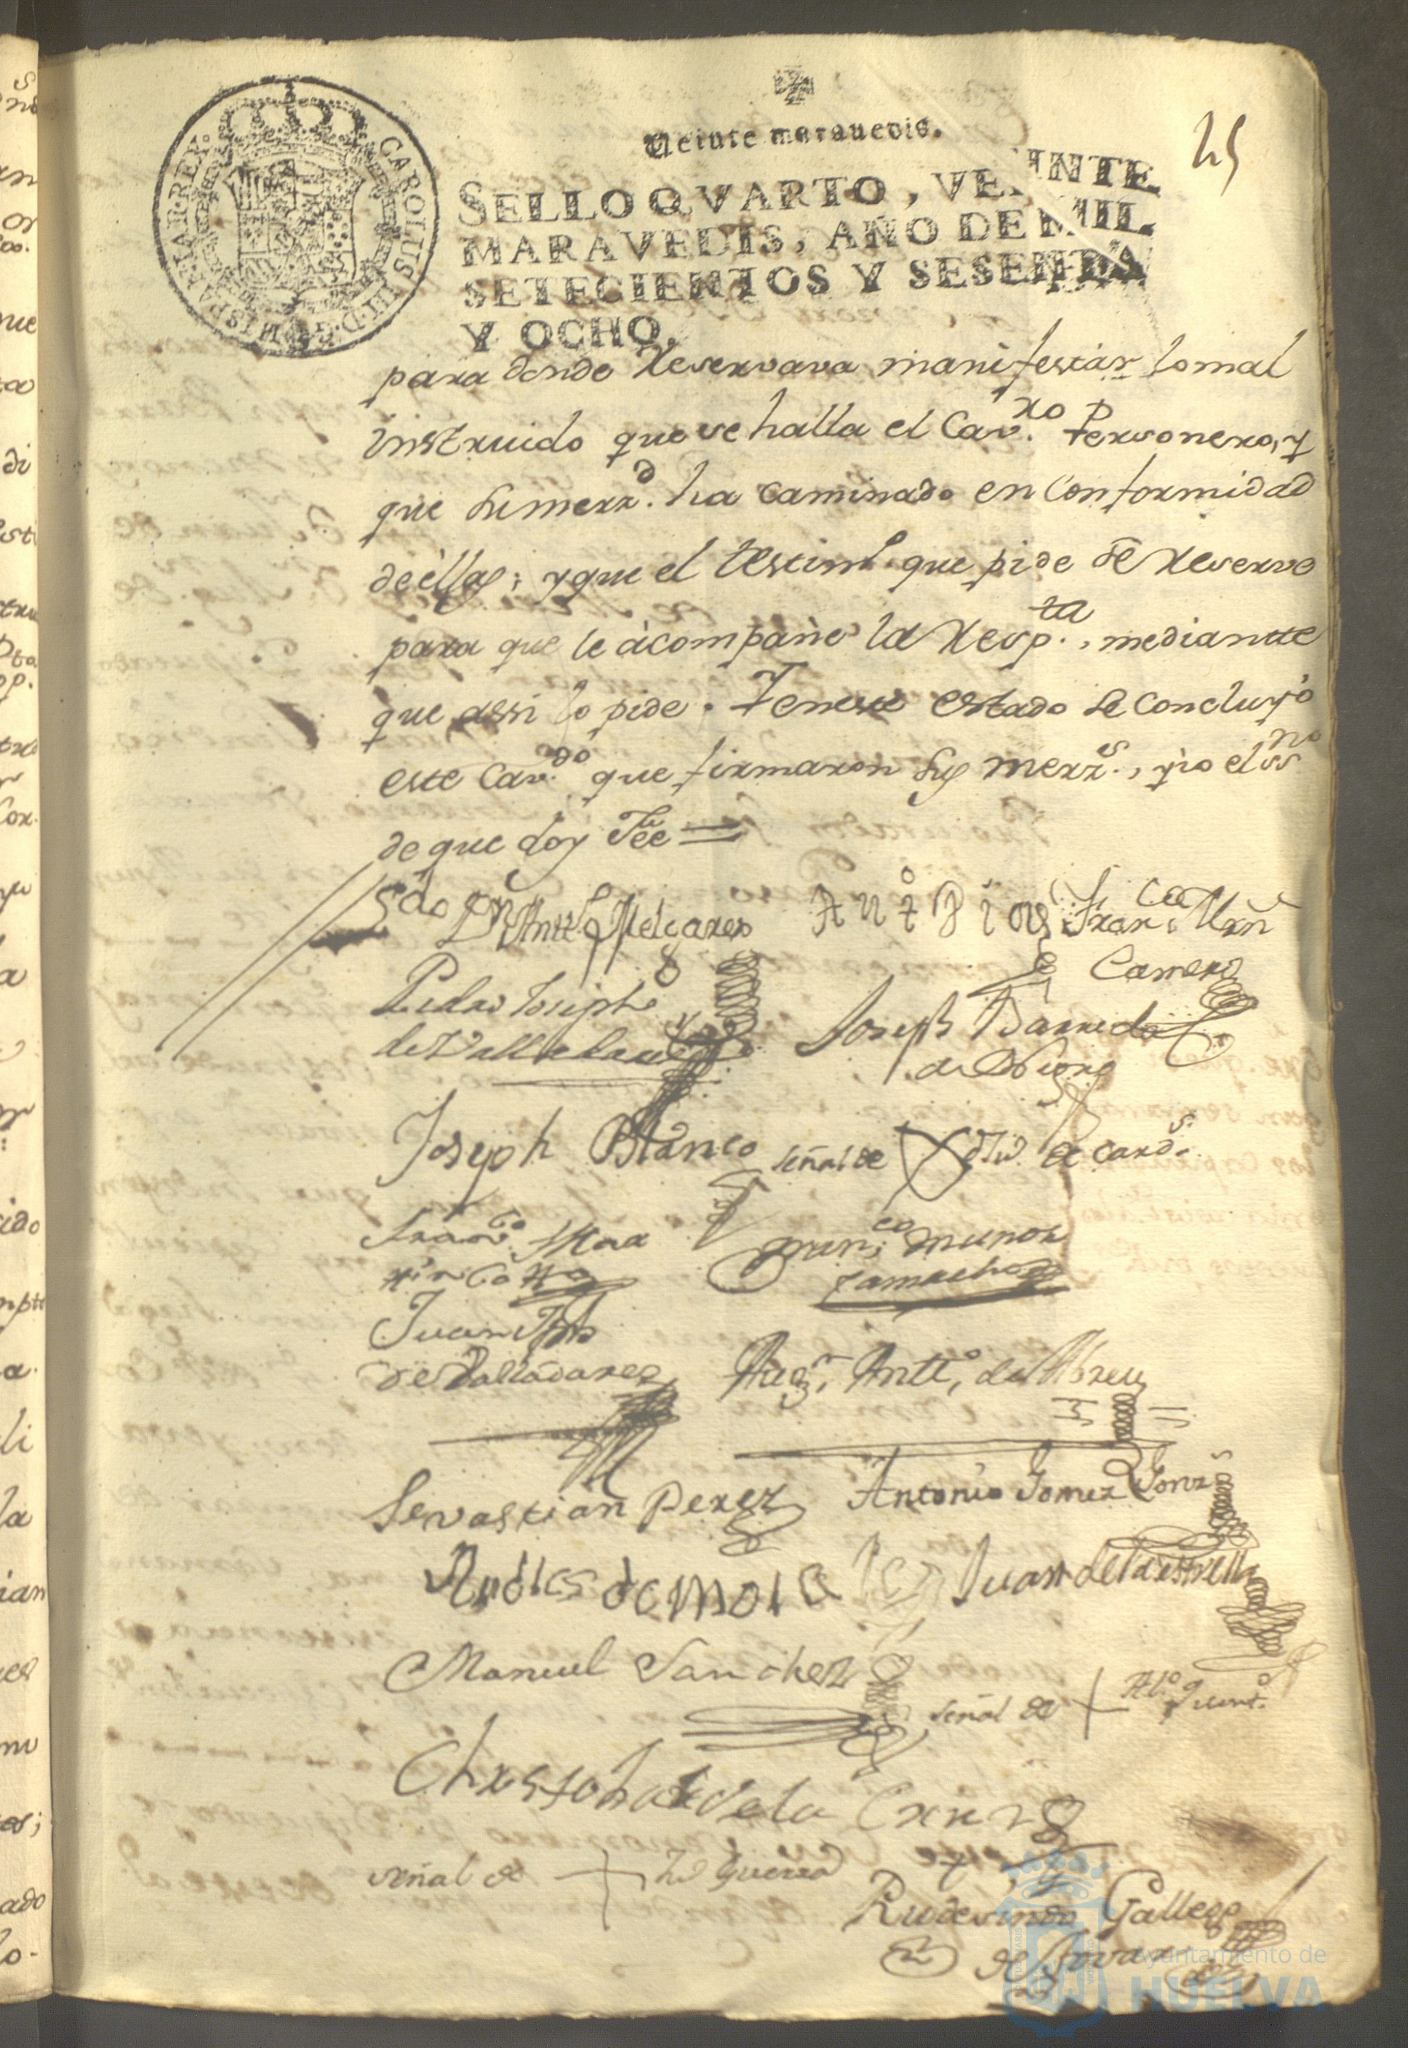 Veinte maravedis.
25
CAROLUS III D G HISPANIAR REX
SELLO QVARTO, VEINTE
MARAVEDIS, AÑO DE MIL
SETECIENTOS Y SESENTA
Y OCHO.
para donde Reservava manifestar lo mal
instruido que se halla el Cav.ro Personero, y
que su merz.d ha caminado en conformidad
de éllas; y que el testim.o que pide se Reserve
para que le acompañe la Resp.ta, mediantte
que assi lo pide. Y en este estado se concluyó
este Cav.do que firmaron sus merz.s, y io el ss.no
de que doy fee =
Ant.o Rios Fran.co Mrñ
Camero
Pedro Joseph
de Valladares
Joseph Barreda
Joseph Blanco señal de X de Card.s
Fran.co Mar
tin
Fran.co Munoz
Camacho
Juan
de Valladares
Aug.n Antt.o de Abreu
Sevastian Perez Antonio Gomez Gonz.s
Andres de Mola Juan de la Estrella
Manuel Sanchez
señal de + Al.o Quint.o
Christobal de la Cruz
señal de + Guerra
Rudesindo Gallego
de Tovar
Ayuntamiento de
HUELVA